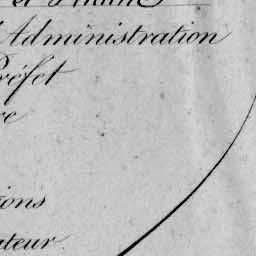 et
Administration
Préfet
re
ions
ateur